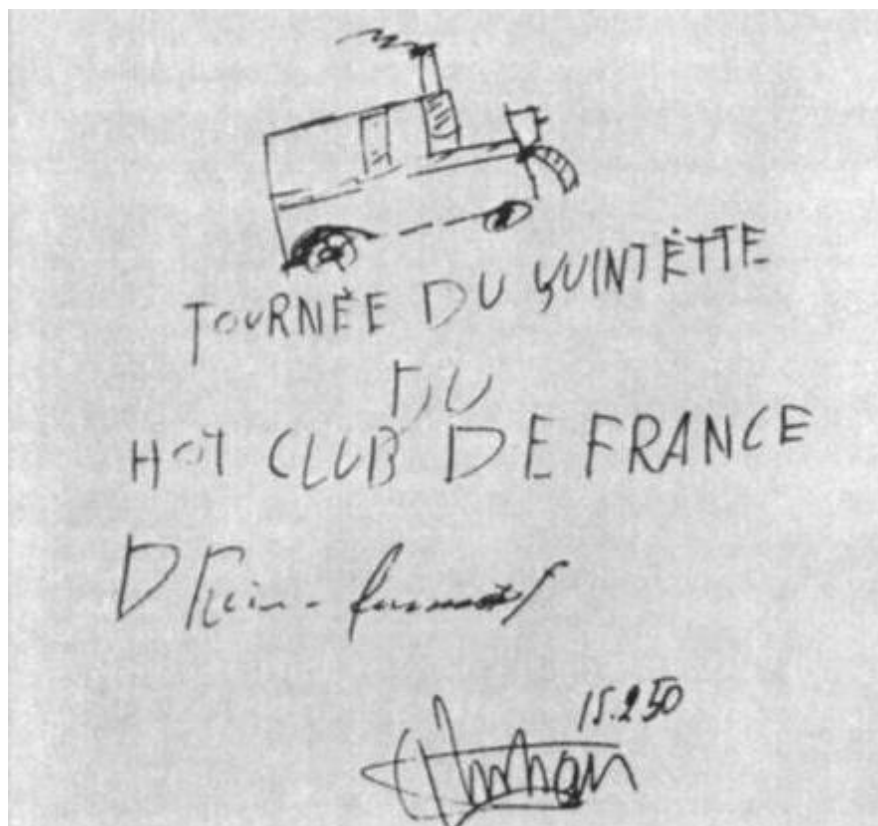 TOURNÈE DU QUINTÈTTE
DU
HOT CLUB DE FRANCE
D
15.2.50